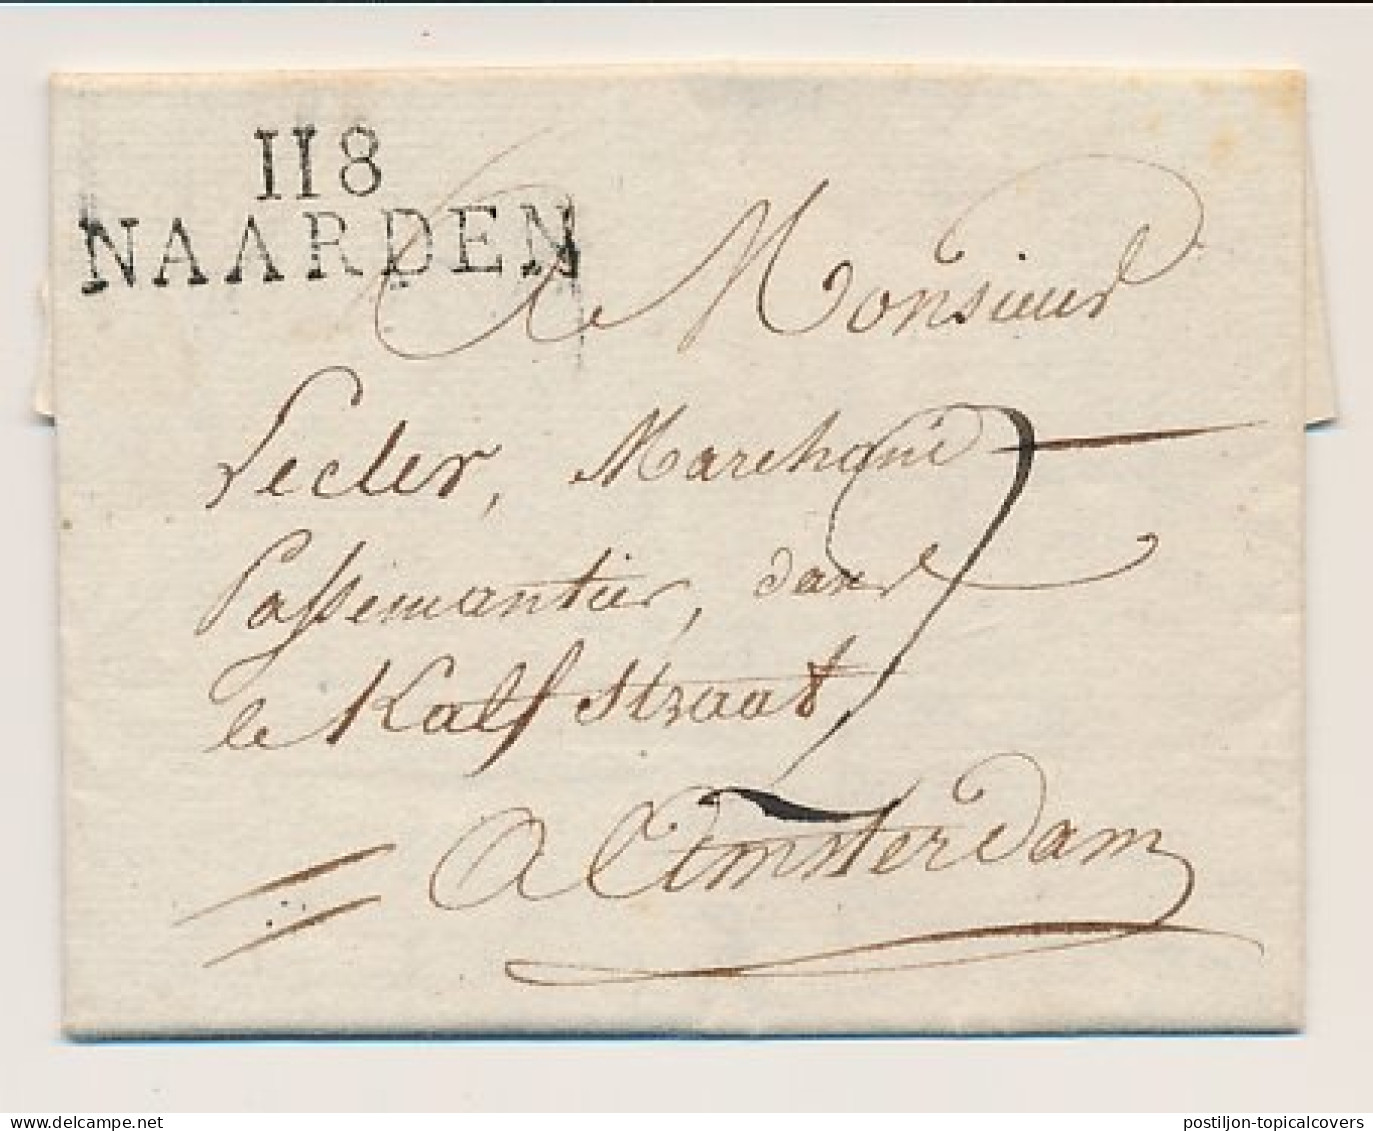 118
NAARDEN
A Monsieur
Lecler, Marchand
Passementier, dans
le Kalf Straat
A Amsterdam
delcampe.net
postiljon-topicalcovers